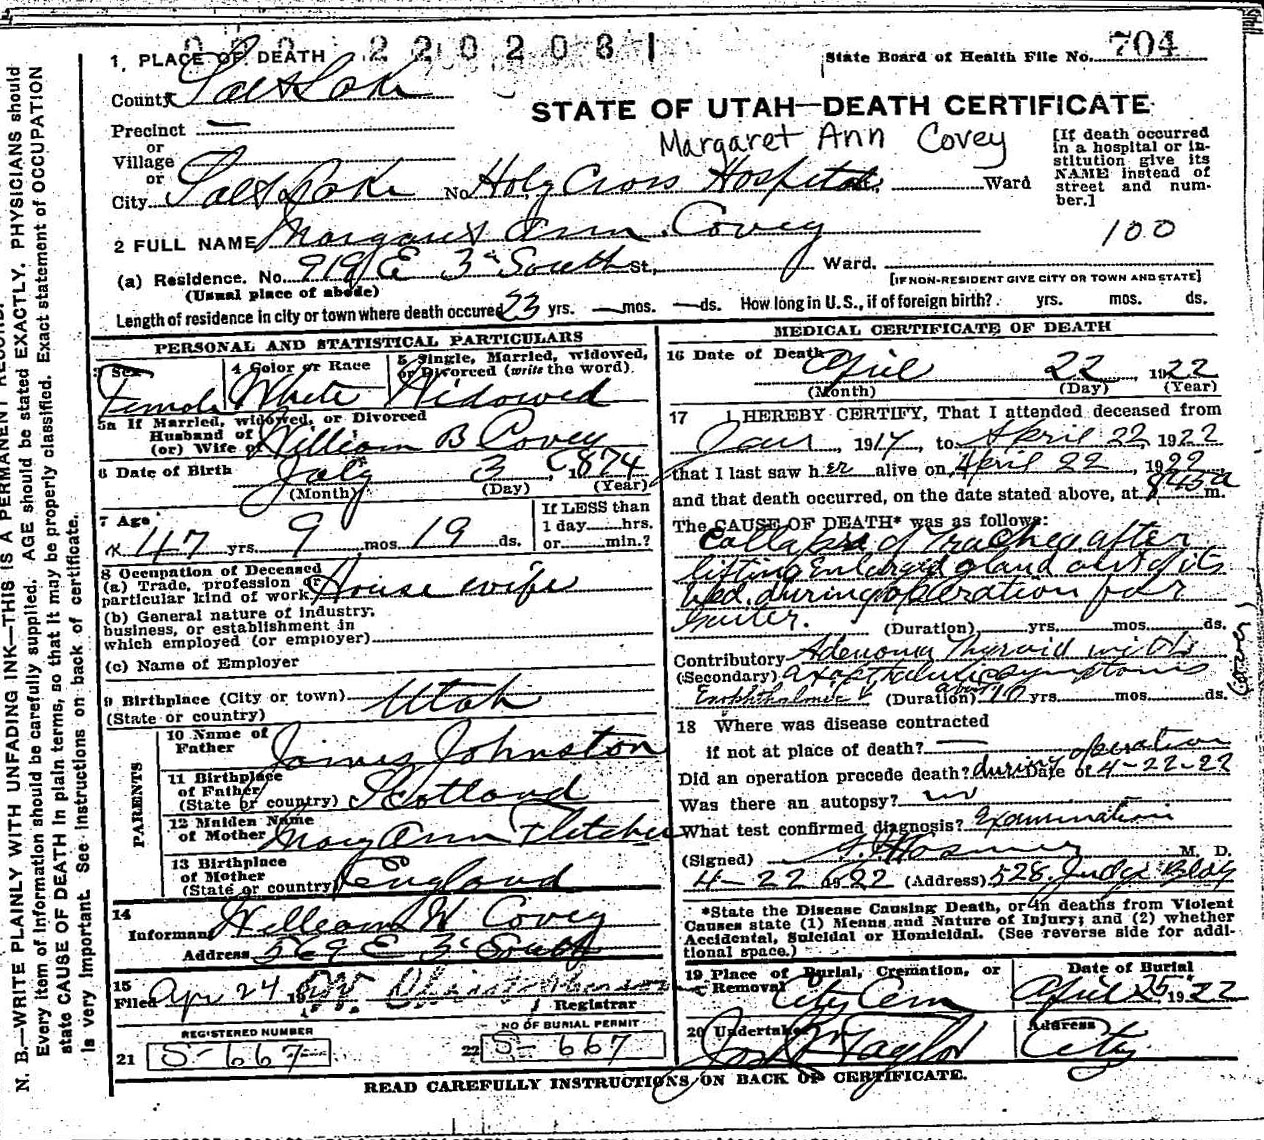 1, PLACE OF DEATH 220203
State Board of Health File No. 704
County Salt Lake
STATE OF UTAH—DEATH CERTIFICATE
Precinct
Margaret Ann Covey
[If death occurred in a hospital or institution give its NAME instead of street and number.]
or
Village
or
City Salt Lake No. Holy Cross Hospital Ward
2 FULL NAME Margaret Ann Covey
100
(a) Residence. No. 919 E 3d South St., Ward.
(Usual place of abode)
[IF NON-RESIDENT GIVE CITY OR TOWN AND STATE]
Length of residence in city or town where death occured 23 yrs. — mos. — ds. How long in U.S., if of foreign birth? yrs. mos. ds.
PERSONAL AND STATISTICAL PARTICULARS
3 Sex
Female
4 Color or Race
White
5 Single, Married, widowed, or Divorced (write the word).
Widowed
5a If Married, widowed, or Divorced
Husband of
(or) Wife of William B Covey
6 Date of Birth July 3, 1874
(Month) (Day) (Year)
7 Age
47 yrs. 9 mos 19 ds.
If LESS than
1 day hrs.
or min.?
8 Occupation of Deceased
(a) Trade, profession or
particular kind of work House wife
(b) General nature of industry.
business, or establishment in
which employed (or employer)
(c) Name of Employer
9 Birthplace (City or town)
(State or country) Utah
PARENTS
10 Name of
Father James Johnston
11 Birthplace
of Father
(State or country) Scotland
12 Maiden Name
of Mother Mary Ann Fletcher
13 Birthplace
of Mother
(State or country) England
14
Informant William W Covey
Address 569 E 3d South
15
Filed Apr 24 19
Registrar
REGISTERED NUMBER
21 S-667
NO OF BURIAL PERMIT
22 S-667
MEDICAL CERTIFICATE OF DEATH
16 Date of Death April 22, 1922
(Month) (Day) (Year)
17 I HEREBY CERTIFY, That I attended deceased from
1917, to April 22, 1922
that I last saw her alive on April 22, 1922
and that death occurred, on the date stated above, at 845 a m.
The CAUSE OF DEATH* was as follows:
Collapse of trachea after
lifting Enlarged gland out of its
bed during operation for
Goiter.
(Duration) yrs. mos. ds.
Contributory Adenoma Thyroid with
(Secondary) exophthalmic symptoms
Exophthalmic (Duration) about 10 yrs. mos. ds.
(Cancer)
18 Where was disease contracted
if not at place of death? —
Did an operation precede death? during operation Date of 4-22-22
Was there an autopsy? no
What test confirmed diagnosis? Examination
(Signed) M. D.
4-22 1922 (Address) 528 Judge Bldg
*State the Disease Causing Death, or in deaths from Violent
Causes state (1) Means and Nature of Injury; and (2) whether
Accidental, Suicidal or Homicidal. (See reverse side for addi-
tional space.)
19 Place of Burial, Cremation, or
Removal City Cem
Date of Burial
April 25, 1922
20 Undertaker
Taylor
Address
City
READ CAREFULLY INSTRUCTIONS ON BACK OF CERTIFICATE.
N. B.—WRITE PLAINLY WITH UNFADING INK—THIS IS A PERMANENT RECORD.
Every item of information should be carefully supplied. AGE should be stated EXACTLY. PHYSICIANS should
state CAUSE OF DEATH in plain terms, so that it may be properly classified. Exact statement of OCCUPATION
is very important. See instructions on back of certificate.